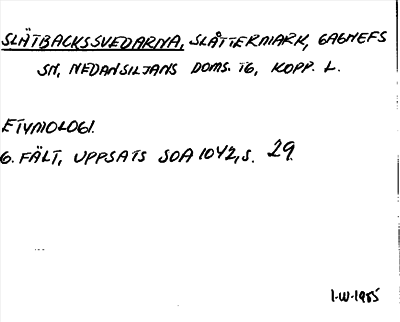 SLÄTBACKSSVEDARNA, SLÅTTERMARK, GAGNEFS
SN, NEDANSILJANS DOMS. TG, KOPP. L.
ETYMOLOGI.
G. FÄLT, UPPSATS SOA 1042, S. 29.
I-W-1985